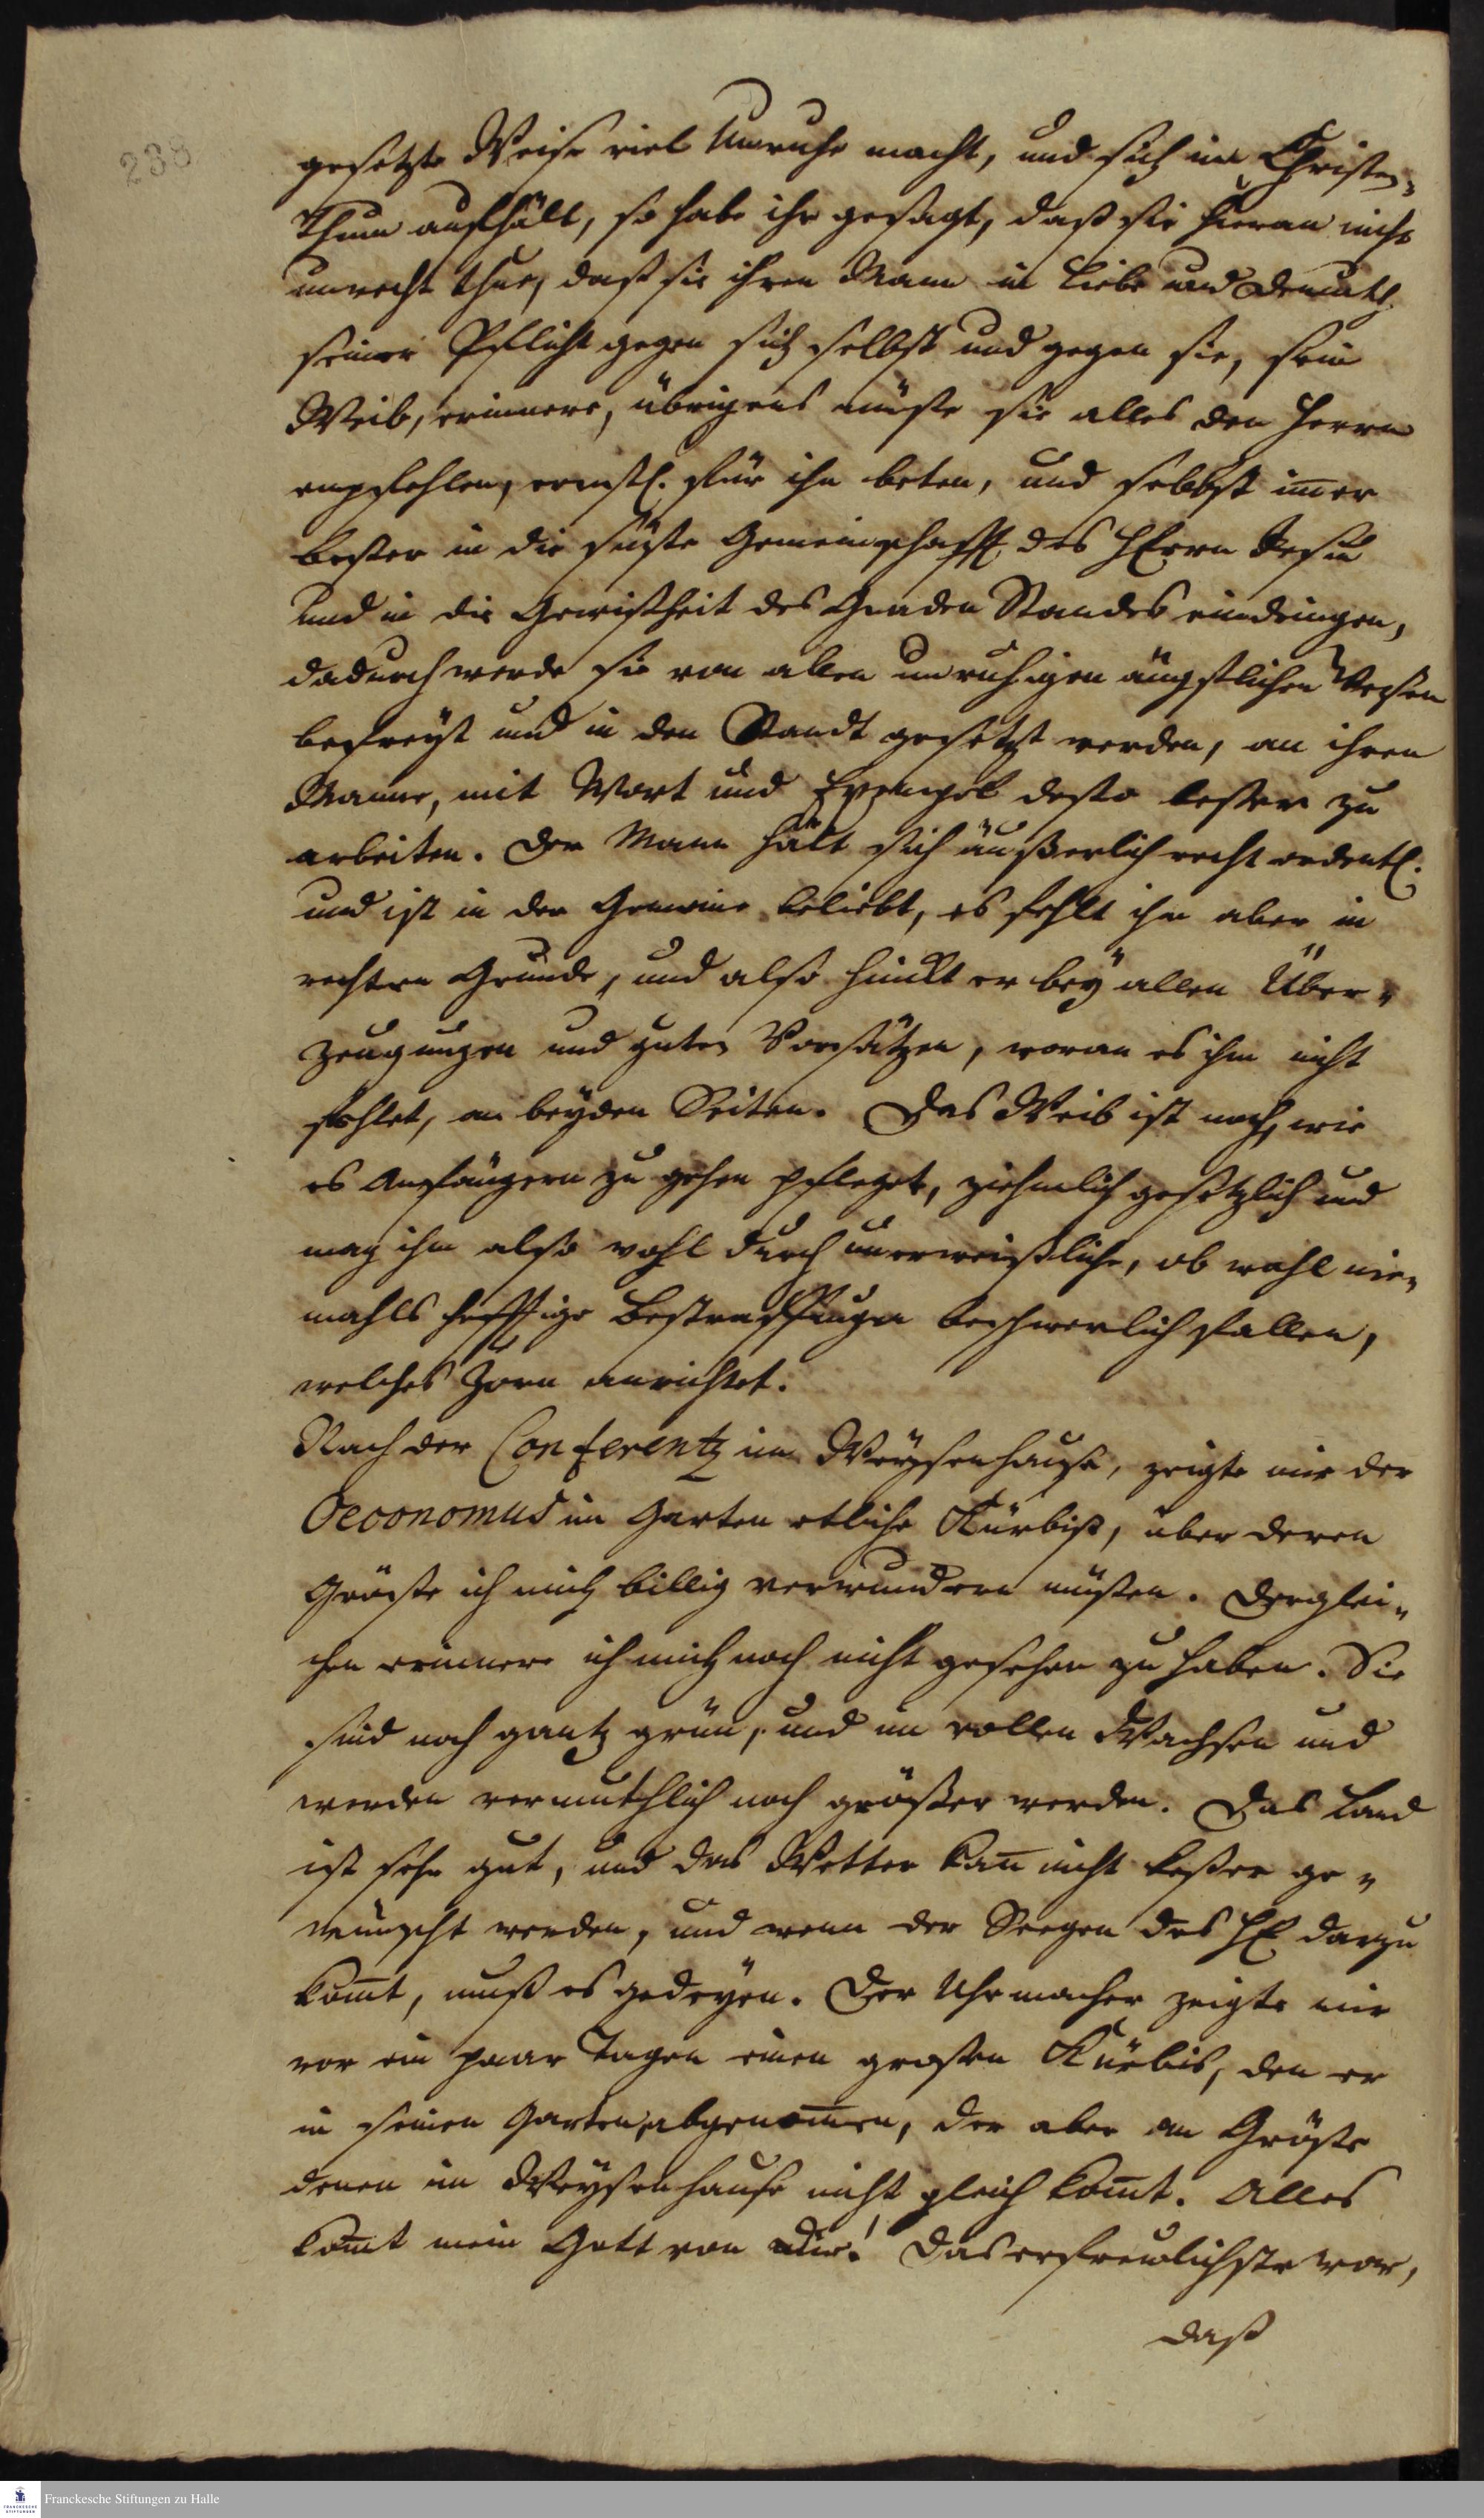 238
gesetzte Weise viel Unruhe macht, und sich im Christen-
thum aufhält, so habe ihr gesagt, daß sie hieran nicht
unrecht thue, daß sie ihren Mann in Liebe und Demuth
seiner Pflicht gegen sich selbst und gegen sie, sein
Weib, erinnere, übrigens müste sie alles den Herrn
empfehlen, ernstl. für ihn beten, und selbst im̄er
beßer in die süste Gemeinschafft des HErrn Jesu
und in die Gewißheit des Gnaden Standes eindringen,
dadurch werde sie von allen unruhigen ängstlichen Wesen
befreyt und in den Standt gesetzt werden, an ihren
Manne, mit Wort und Exempel desto beßer zu
arbeiten. Der Mann hält sich äußerlich recht ordentl.
und ist in der Gemeine beliebt, es fehlt ihm aber im
rechten Grunde, und also hinckt er bey allen Über-
zeugungen und guten Vorsätzen, woran es ihm nicht
fehlet, an beyden Seiten. Das Weib ist noch, wie
es Anfängern zu gehen pfleget, ziehmlich gesetzlich und
mag ihm also wohl durch unerweißliche, ob wohl nie-
mahls hefftige Bestraffungen beschwerlich fallen,
welches Zorn anrichtet.
Nach der Conferentz im Waysenhause, zeigte mir der
Oeconomus im Garten etliche Kürbiß, über deren
Größe ich mich billig verwundern müßen. Derglei-
chen erinnere ich mich noch nicht gesehen zu haben. Sie
sind noch gantz grün, und im vollen Wachsen und
werden vermuthlich noch größer werden. Das Land
ist sehr gut, und das Wetter kan̄ nicht beßer ge-
wünscht werden, und wenn der Seegen des HE darzu
kom̄t, muß es gedeyen. Der Uhrmacher zeigte mir
vor ein paar Tagen einen großen Kürbis, den er
in seinen Garten abgenom̄en, der aber an Größe
denen im Waysenhause nicht gleich kom̄t. Alles
kom̄t mein Gott von dir! Das erfreulichste war,
daß
Franckesche Stiftungen zu Halle